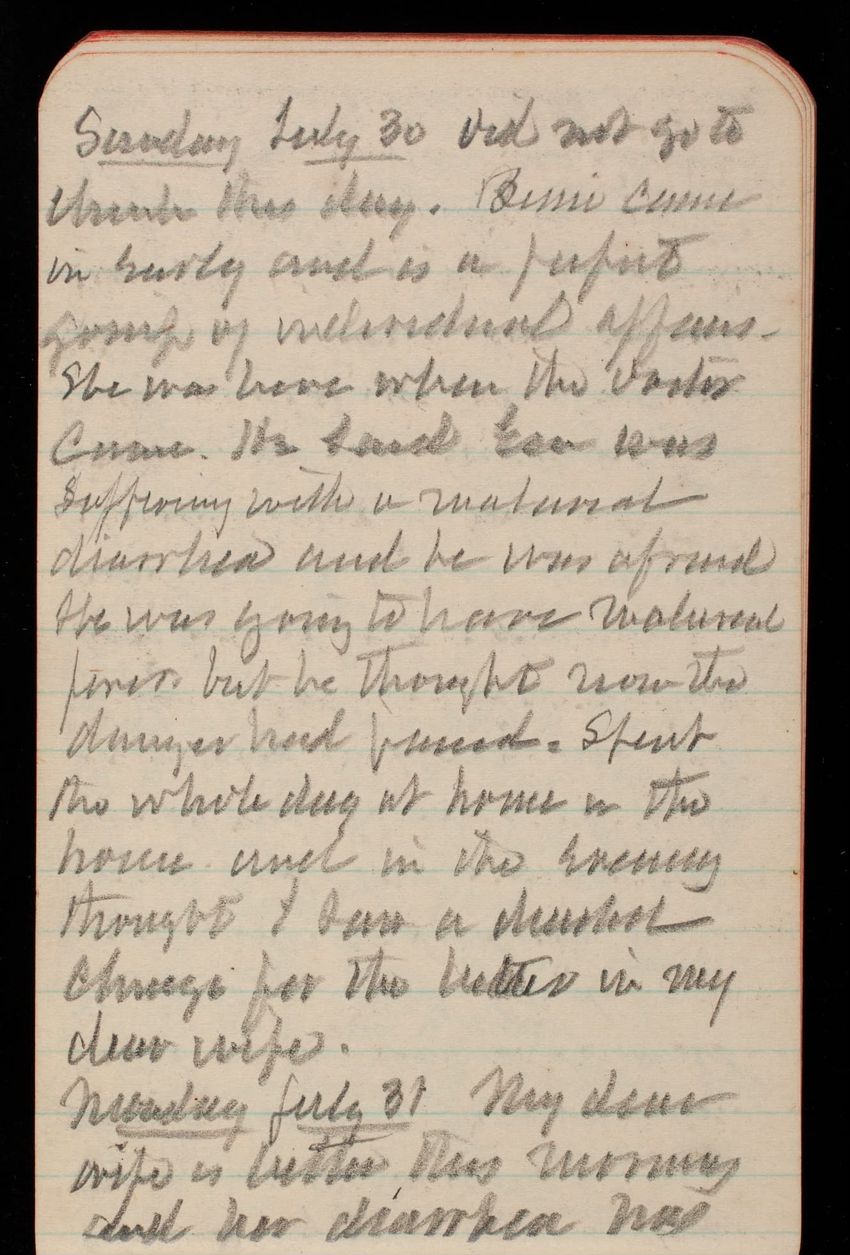 Sunday July 30 Did not go to
Church this day. Bessie came
in early and is a perfect
gossip of individual affairs.
She was here when the Doctor
Came. He said Em was
Suffering with a malarial
diarrhea and he was afraid
she was going to have malarial
fever but he thought now the
danger had passed. Spent
the whole day at home in the
house and in the evening
thought I saw a decided
change for the better in my
dear wife.
Monday July 31 My dear
wife is better this morning
and her diarrhea has